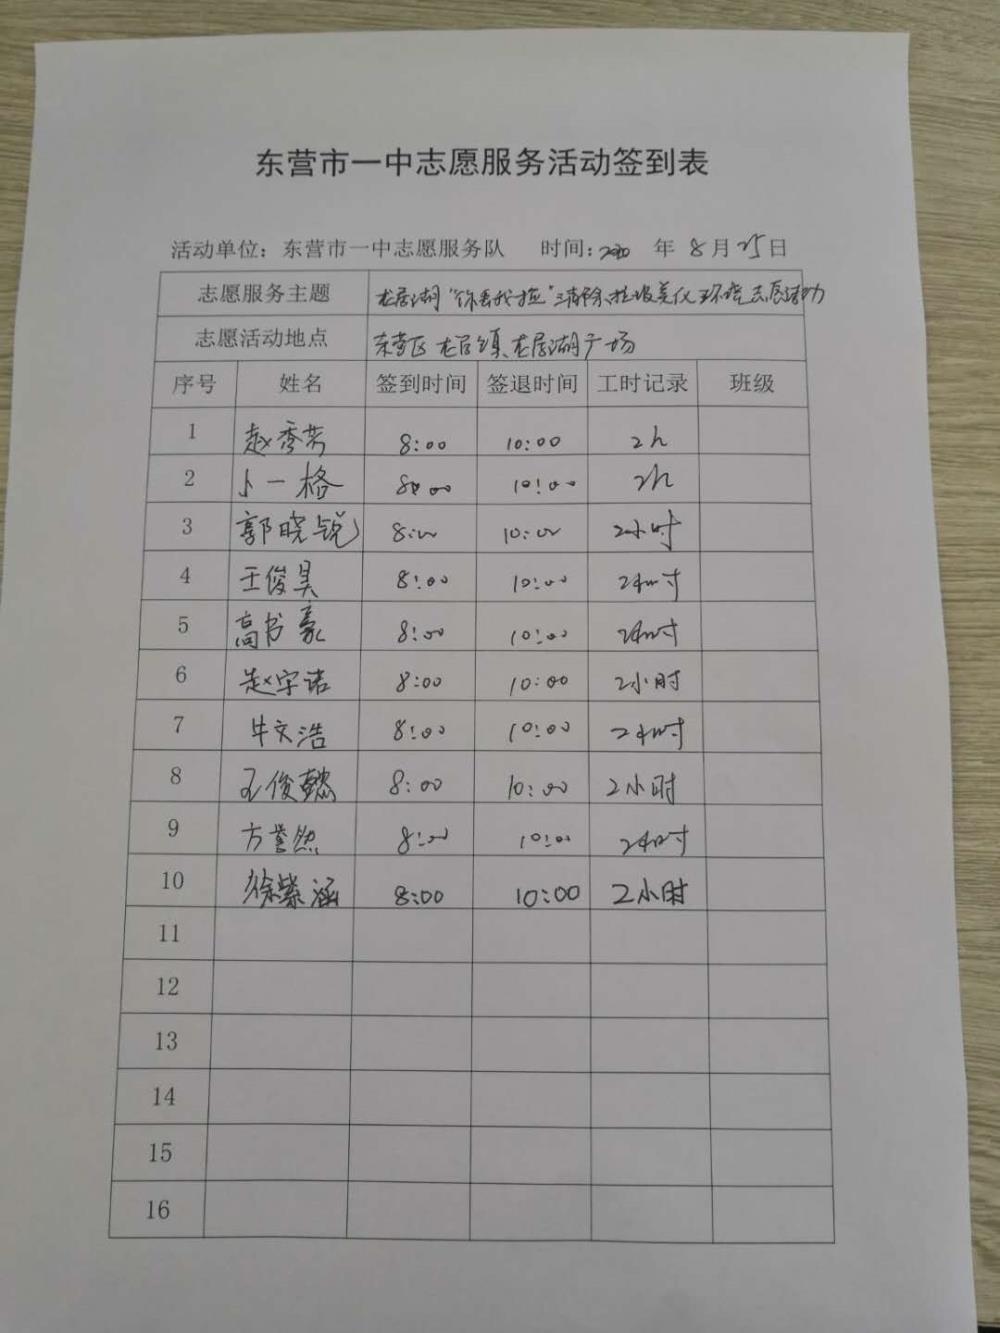 东营市一中志愿服务活动签到表
活动单位：东营市一中志愿服务队 时间：2020 年 8 月 25 日
志愿服务主题 龙居湖“你丢我捡”清除垃圾美化环境志愿活动
志愿活动地点 东营区龙居镇龙居湖广场
序号 姓名 签到时间 签退时间 工时记录 班级
1 赵秀芳 8:00 10:00 2h
2 卜一格 8:00 10:00 2h
3 郭晓锐 8:00 10:00 2小时
4 王俊昊 8:00 10:00 2小时
5 高书豪 8:00 10:00 2小时
6 赵宇诺 8:00 10:00 2小时
7 牛文浩 8:00 10:00 2小时
8 王俊懿 8:00 10:00 2小时
9 方誉然 8:00 10:00 2小时
10 徐紫涵 8:00 10:00 2小时
11
12
13
14
15
16